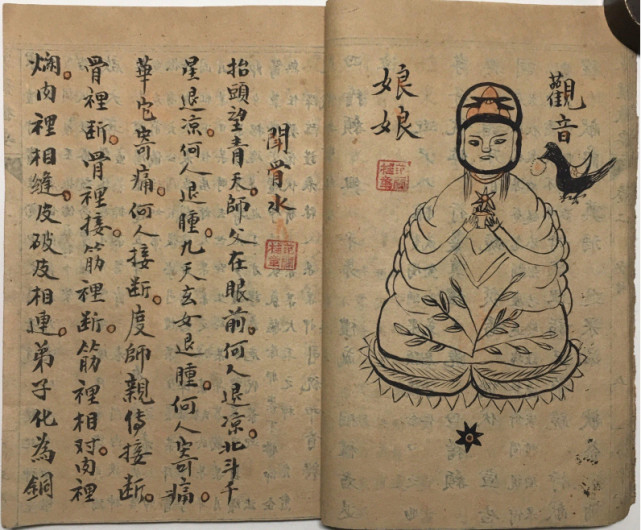 觀音
娘娘
聞骨水
抬頭望青天。師父在眼前。何人退凉北斗千
星退凉。何人退腫。九天玄女退腫。何人寄痛
華它寄痛。何人接断。度師親传接断。
骨裡断。骨裡接。筋裡断筋裡相对。肉裡
肉裡相縫。皮破皮相連。弟子化為銅